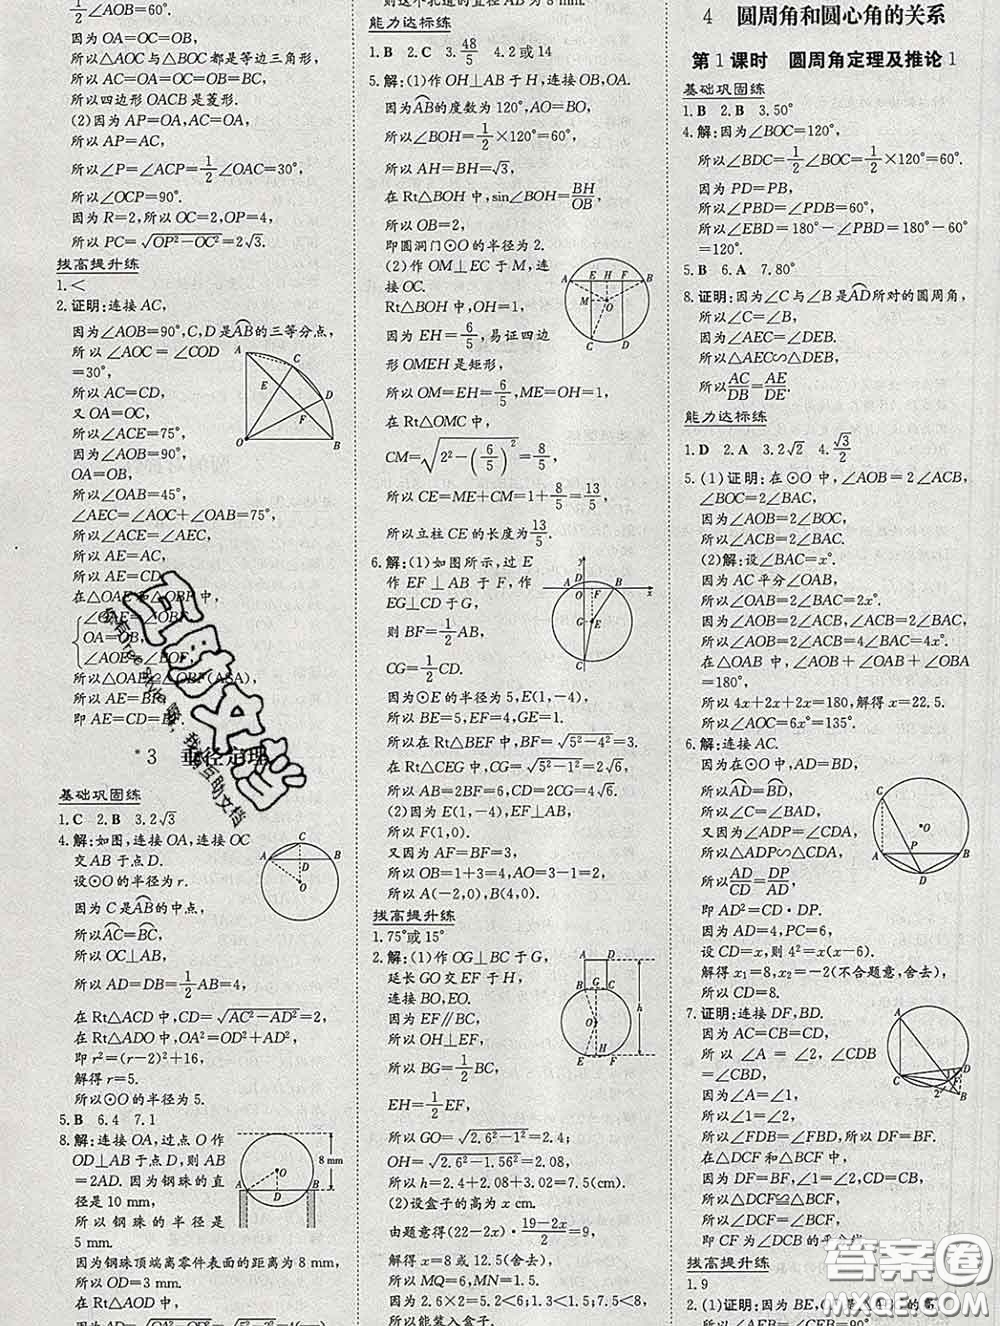 1/2∠AOB=60°.
因为OA=OC=OB,
所以△AOC与△BOC都是等边三角形,
所以四边形OACB是菱形.
(2)因为AP=OA, AC=OA,
所以AP=AC,
所以∠P=∠ACP=1/2∠OAC=30°,
所以∠OCP=90°.
因为R=2,所以OC=2, OP=4,
所以PC=√(OP²-OC²)=2√3.
拔高提升练
1.<
2.证明:连接AC,
因为∠AOB=90°,C,D是AB的三等分点,
所以∠AOC=∠COD
=30°,
所以AC=CD,
又OA=OC,
所以∠ACE=75°,
因为∠AOB=90°,
OA=OB,
所以∠OAB=45°,
∠AEC=∠AOC+∠OAB=75°,
所以∠ACE=∠AEC,
所以AE=AC,
所以AE=CD
在△OAE与△OBF中,
∠OAE=∠OBF,
OA=OB,
∠AOE=∠BOF,
所以△OAE≌△OBF(ASA),
所以AE=BF
即AE=CD=BF
*3 垂径定理
基础巩固练
1.C 2.B 3.2√3
4.解:如图,连接OA,连接OC
交AB于点D.
设⊙O的半径为r.
因为C是AB的中点,
所以AC=BC,
所以OC⊥AB,
所以AD=DB=1/2AB=4,
在Rt△ACD中,CD=√(AC²-AD²)=2,
在Rt△ADO中,OA²=OD²+AD²,
即r²=(r-2)²+16,
解得r=5.
所以⊙O的半径为5.
5.B 6.4 7.1
8.解:连接OA,过点O作
OD⊥AB于点D,则AB
=2AD. 因为钢珠的直
径是10 mm,
所以钢珠的半径是
5 mm.
因为钢珠顶端离零件表面的距离为8 mm,
所以OD=3 mm.
在Rt△AOD中,
则这个孔道的直径AB为8 mm.
能力达标练
1.B 2.C 3.48/5 4.2或14
5.解:(1)作OH⊥AB于H,连接OB,OA.
因为AB的度数为120°,AO=BO,
所以∠BOH=1/2×120°=60°,
所以AH=BH=√3,
在Rt△BOH中,sin∠BOH=BH/OB,
所以OB=2,
即圆洞门⊙O的半径为2.
(2)作OM⊥EC于M,连
接OC.
Rt△BOH中,OH=1,
因为EH=6/5,易证四边
形OMEH是矩形,
所以OM=EH=6/5,ME=OH=1,
在Rt△OMC中,
CM=√(2²-(6/5)²)=8/5,
所以CE=ME+CM=1+8/5=13/5,
所以立柱CE的长度为13/5.
6.解:(1)如图所示,过E
作EF⊥AB于F,作
EG⊥CD于G,
则BF=1/2AB,
CG=1/2CD.
因为⊙E的半径为5,E(1,-4),
所以BE=5,EF=4,GE=1.
在Rt△BEF中,BF=√(5²-4²)=3.
在Rt△CEG中,CG=√(5²-1²)=2√6.
所以AB=2BF=6,CD=2CG=4√6.
(2)因为E(1,-4),
所以F(1,0).
又因为AF=BF=3,
所以OB=1+3=4,AO=3-1=2,
所以A(-2,0),B(4,0).
拔高提升练
1.75°或15°
2.解:(1)作OG⊥BC于G,
延长GO交EF于H,
连接BO,EO.
因为EF∥BC,
所以OH⊥EF,
所以BG=1/2BC,
EH=1/2EF,
所以GO=√(2.6²-1²)=2.4,
OH=√(2.6²-1.56²)=2.08,
所以h=2.4+2.08+3.02=7.5(cm).
(2)设盒子的高为x cm.
由题意得(22-2x)·(19-2x)/2=9,
解得x=8或12.5(舍去),
所以MQ=6,MN=1.5.
因为2.6×2=5.2<6;1.3<1.5;7.5<8,
所以能装入盒子.
4 圆周角和圆心角的关系
第1课时 圆周角定理及推论1
基础巩固练
1.B 2.B 3.50°
4.解:因为∠BOC=120°,
所以∠BDC=1/2∠BOC=1/2×120°=60°.
因为PD=PB,
所以∠PBD=∠PDB=60°,
所以∠EBD=180°-∠PBD=180°-60°
=120°.
5.B 6.A 7.80°
8.证明:因为∠C与∠B是AD所对的圆周角,
所以∠C=∠B,
因为∠AEC=∠DEB,
所以△AEC∽△DEB,
所以AC/DB=AE/DE.
能力达标练
1.D 2.A 3.2√2 4.√3/2
5.(1)证明:在⊙O中,∠AOB=2∠ACB,
∠BOC=2∠BAC,
因为∠AOB=2∠BOC,
所以∠ACB=2∠BAC.
(2)解:设∠BAC=x°.
因为AC平分∠OAB,
所以∠OAB=2∠BAC=2x°.
因为∠AOB=2∠ACB,∠ACB=2∠BAC,
所以∠AOB=2∠ACB=4∠BAC=4x°.
在△OAB中,∠AOB+∠OAB+∠OBA
=180°,
所以4x+2x+2x=180,解得x=22.5.
所以∠AOC=6x°=135°.
6.解:连接AC.
因为在⊙O中,AD=BD,
所以AD=BD.
所以∠C=∠BAD,
又因为∠ADP=∠CDA,
所以△ADP∽△CDA,
所以AD/CD=DP/AD,
即AD²=CD·DP,
因为AD=4,PC=6,
设CD=x,则4²=x(x-6).
解得x₁=8,x₂=-2(不合题意,舍去),
所以CD=8.
7.证明:连接DF,BD.
因为AC=CB=CD,
所以∠A=∠2=
∠CBD,
因为∠A=∠1,
所以∠2=∠1,
所以∠FDB=∠FBD,所以DF=BF,
在△DCF和△BCF中,
因为DF=BF,∠1=∠2,CD=CB,
所以△DCF≌△BCF,
所以∠DCF=∠BCF,
即CF为∠DCB的平分线.
拔高提升练
1.9
2.(1)证明:因为BE,